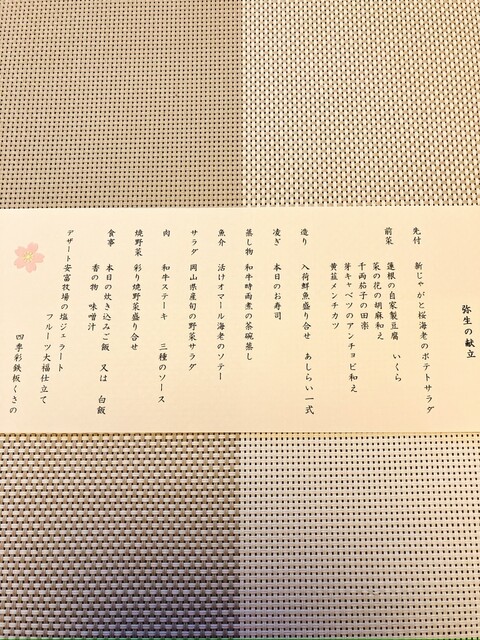 弥生の献立
先付　新じゃがと桜海老のポテトサラダ
前菜　蓮根の自家製豆腐　いくら
菜の花の胡麻和え
千両茄子の田楽
芽キャベツのアンチョビ和え
黄韮メンチカツ
造り　入荷鮮魚盛り合せ　あしらい一式
凌ぎ　本日のお寿司
蒸し物　和牛時雨煮の茶碗蒸し
魚介　活けオマール海老のソテー
サラダ　岡山県産旬の野菜サラダ
肉　和牛ステーキ　三種のソース
焼野菜　彩り焼野菜盛り合せ
食事　本日の炊き込みご飯　又は　白飯
香の物　味噌汁
デザート　安富牧場の塩ジェラート
フルーツ大福仕立て
四季彩鉄板くきの